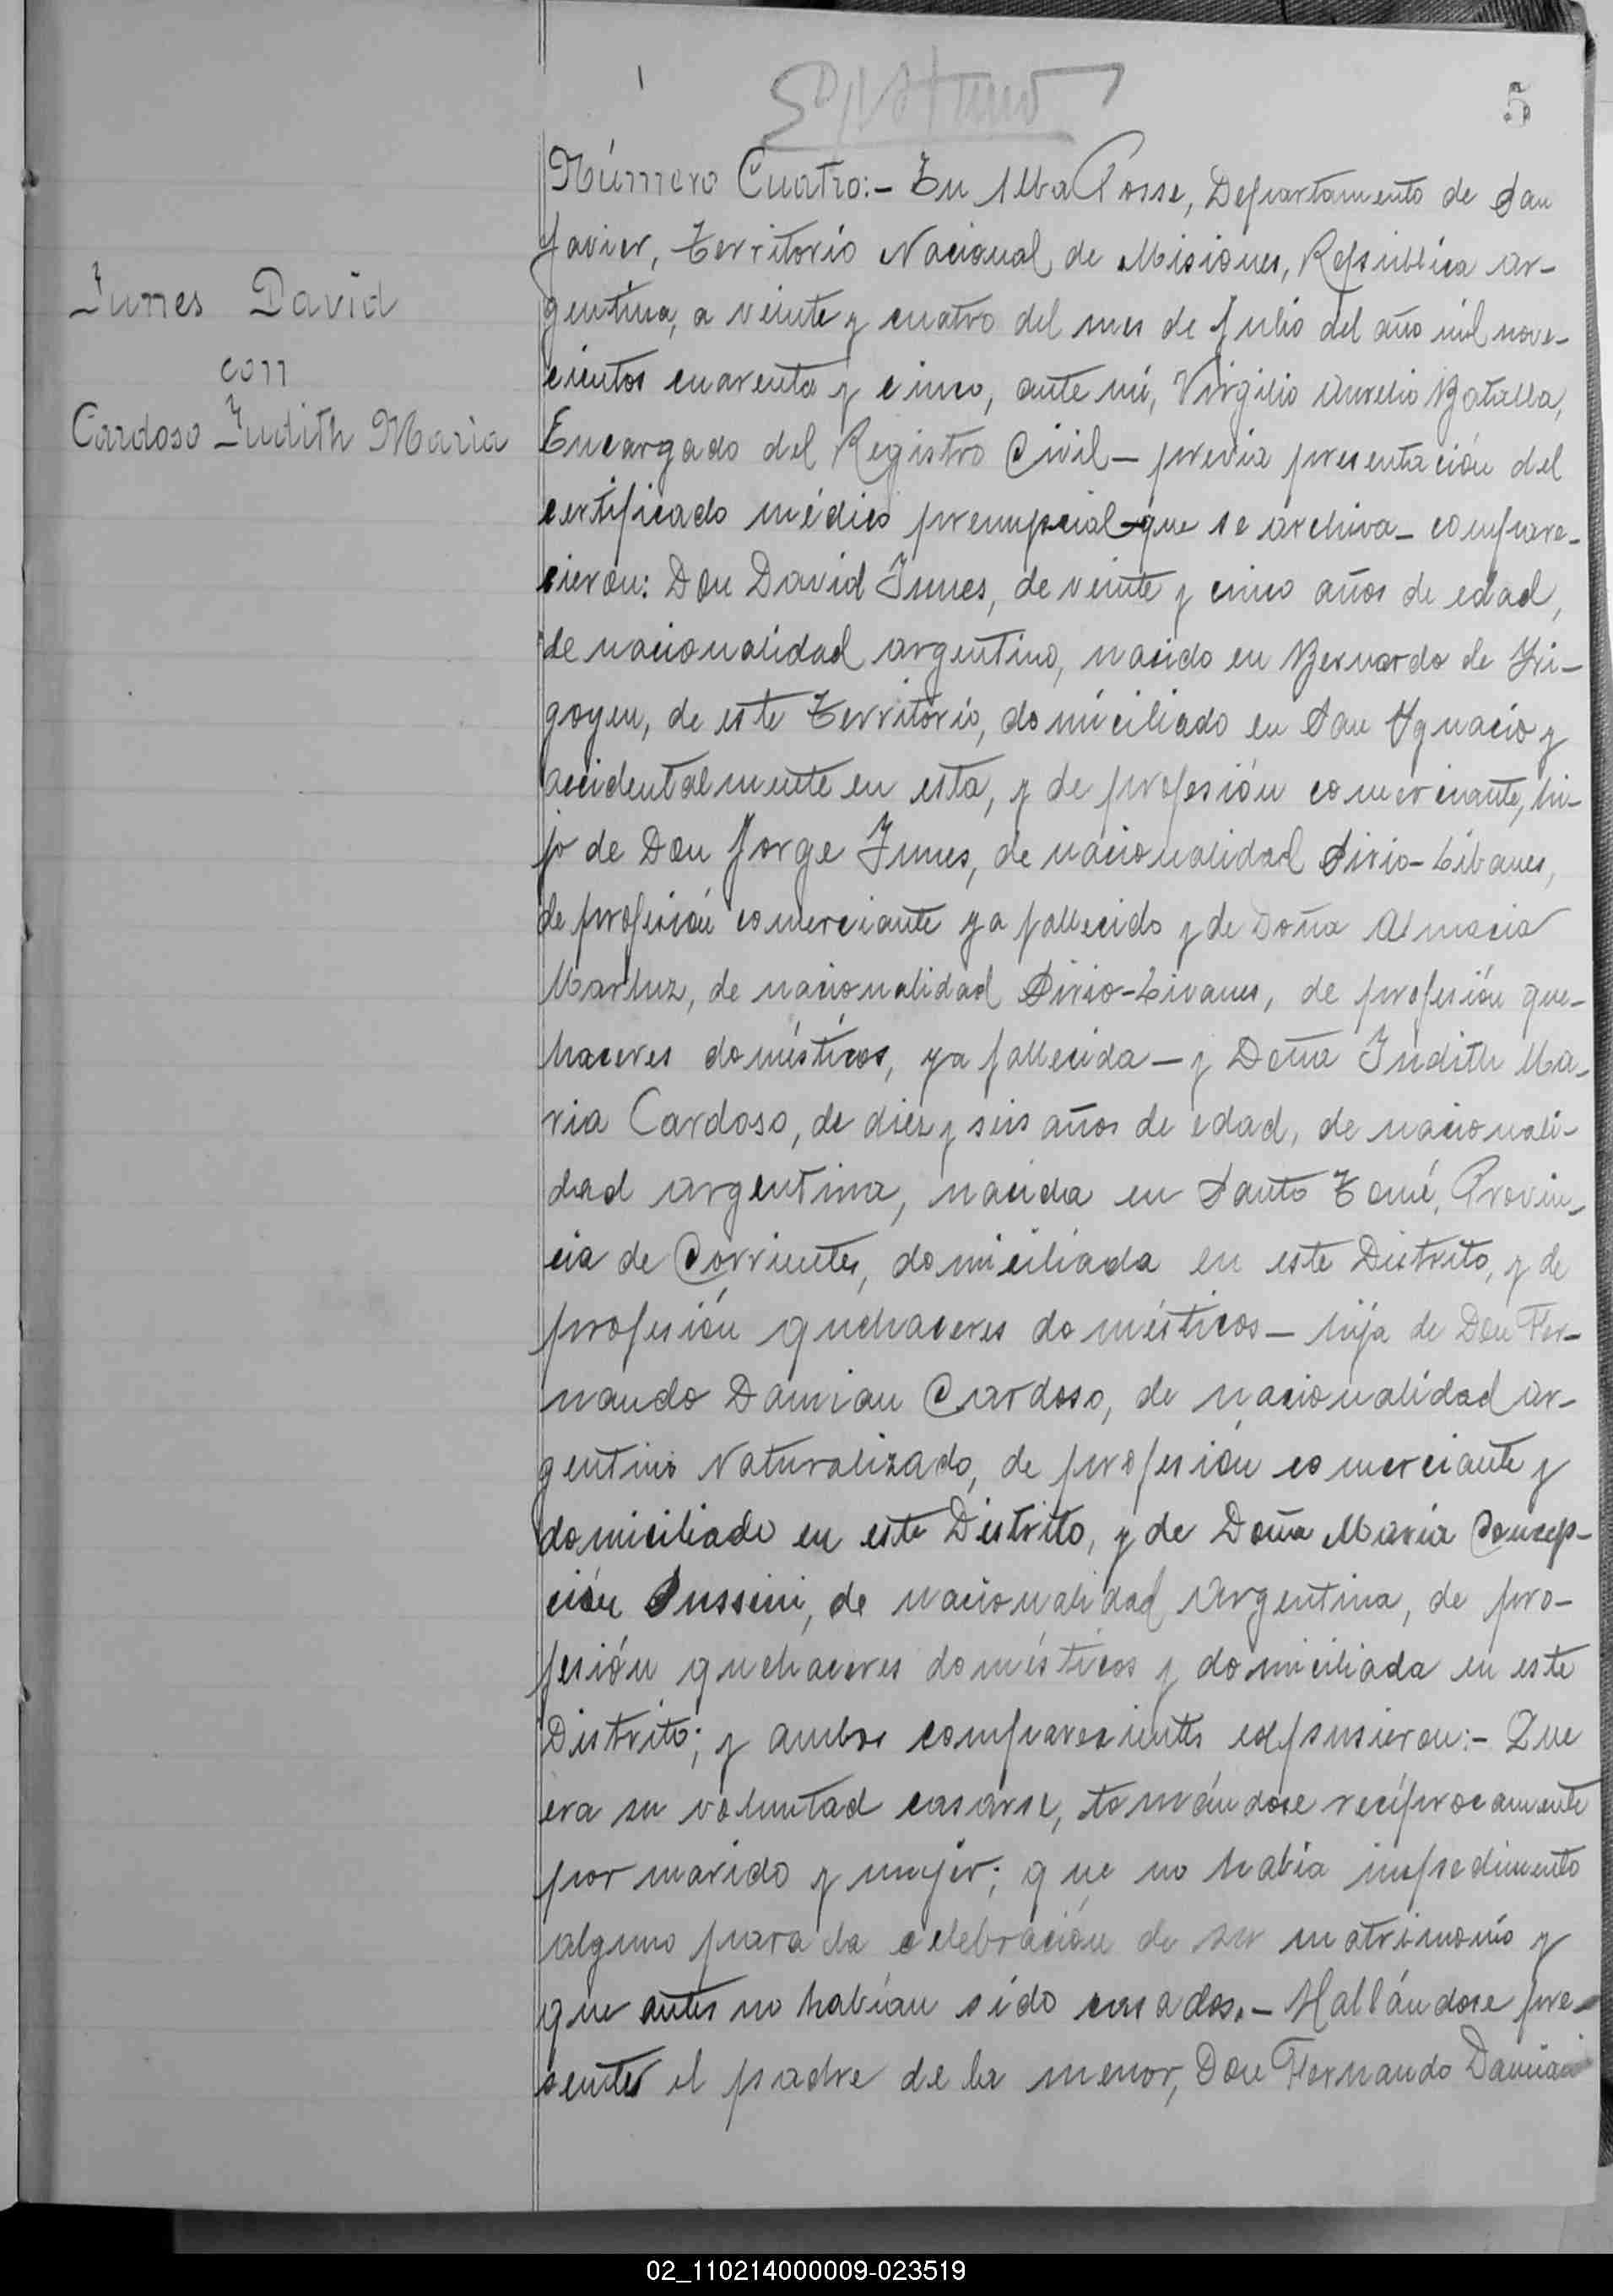 5
Número Cuatro:- En Alba Posse, Departamento de San
Javier, Territorio Nacional de Misiones, República Ar-
gentina, a veinte y cuatro del mes de Julio del año mil nove-
cientos cuarenta y cinco, ante mí, Virgilio Aurelio Batalla,
Encargado del Registro Civil - previa presentación del
certificado médico prenupcial que se archiva - compare-
cieron: Don David Junes, de veinte y cinco años de edad,
de nacionalidad argentino, nacido en Bernardo de Iri-
goyen, de este Territorio, domiciliado en San Ygnacio y
accidentalmente en esta, y de profesión comerciante, hi-
jo de Don Jorge Junes, de nacionalidad Sirio-Libanes,
de profesión comerciante ya fallecido y de Doña Almacia
Marluz, de nacionalidad Sirio-Livanes, de profesión que-
haceres domésticos, ya fallecida - y Doña Judith Ma-
ria Cardoso, de diez y seis años de edad, de nacionali-
dad argentina, nacida en Santo Tomé, Provin-
cia de Corrientes, domiciliada en este Distrito, y de
profesión quehaceres domésticos - hija de Don Fer-
nando Damian Cardoso, de nacionalidad ar-
gentino Naturalizado, de profesión comerciante y
domiciliado en este Distrito, y de Doña María Concep-
ción Sussini, de nacionalidad Argentina, de pro-
fesión quehaceres domésticos y domiciliada en este
Distrito; y ambos comparecientes expusieron:- Que
era su voluntad casarse, tomándose recíprocamente
por marido y mujer; que no había impedimento
alguno para la celebración de su matrimonio y
que antes no habían sido casados.- Hallándose pre-
sentes el padre de la menor, Don Fernando Damian
Junes David
con
Cardoso Judith Maria
02_110214000009-023519